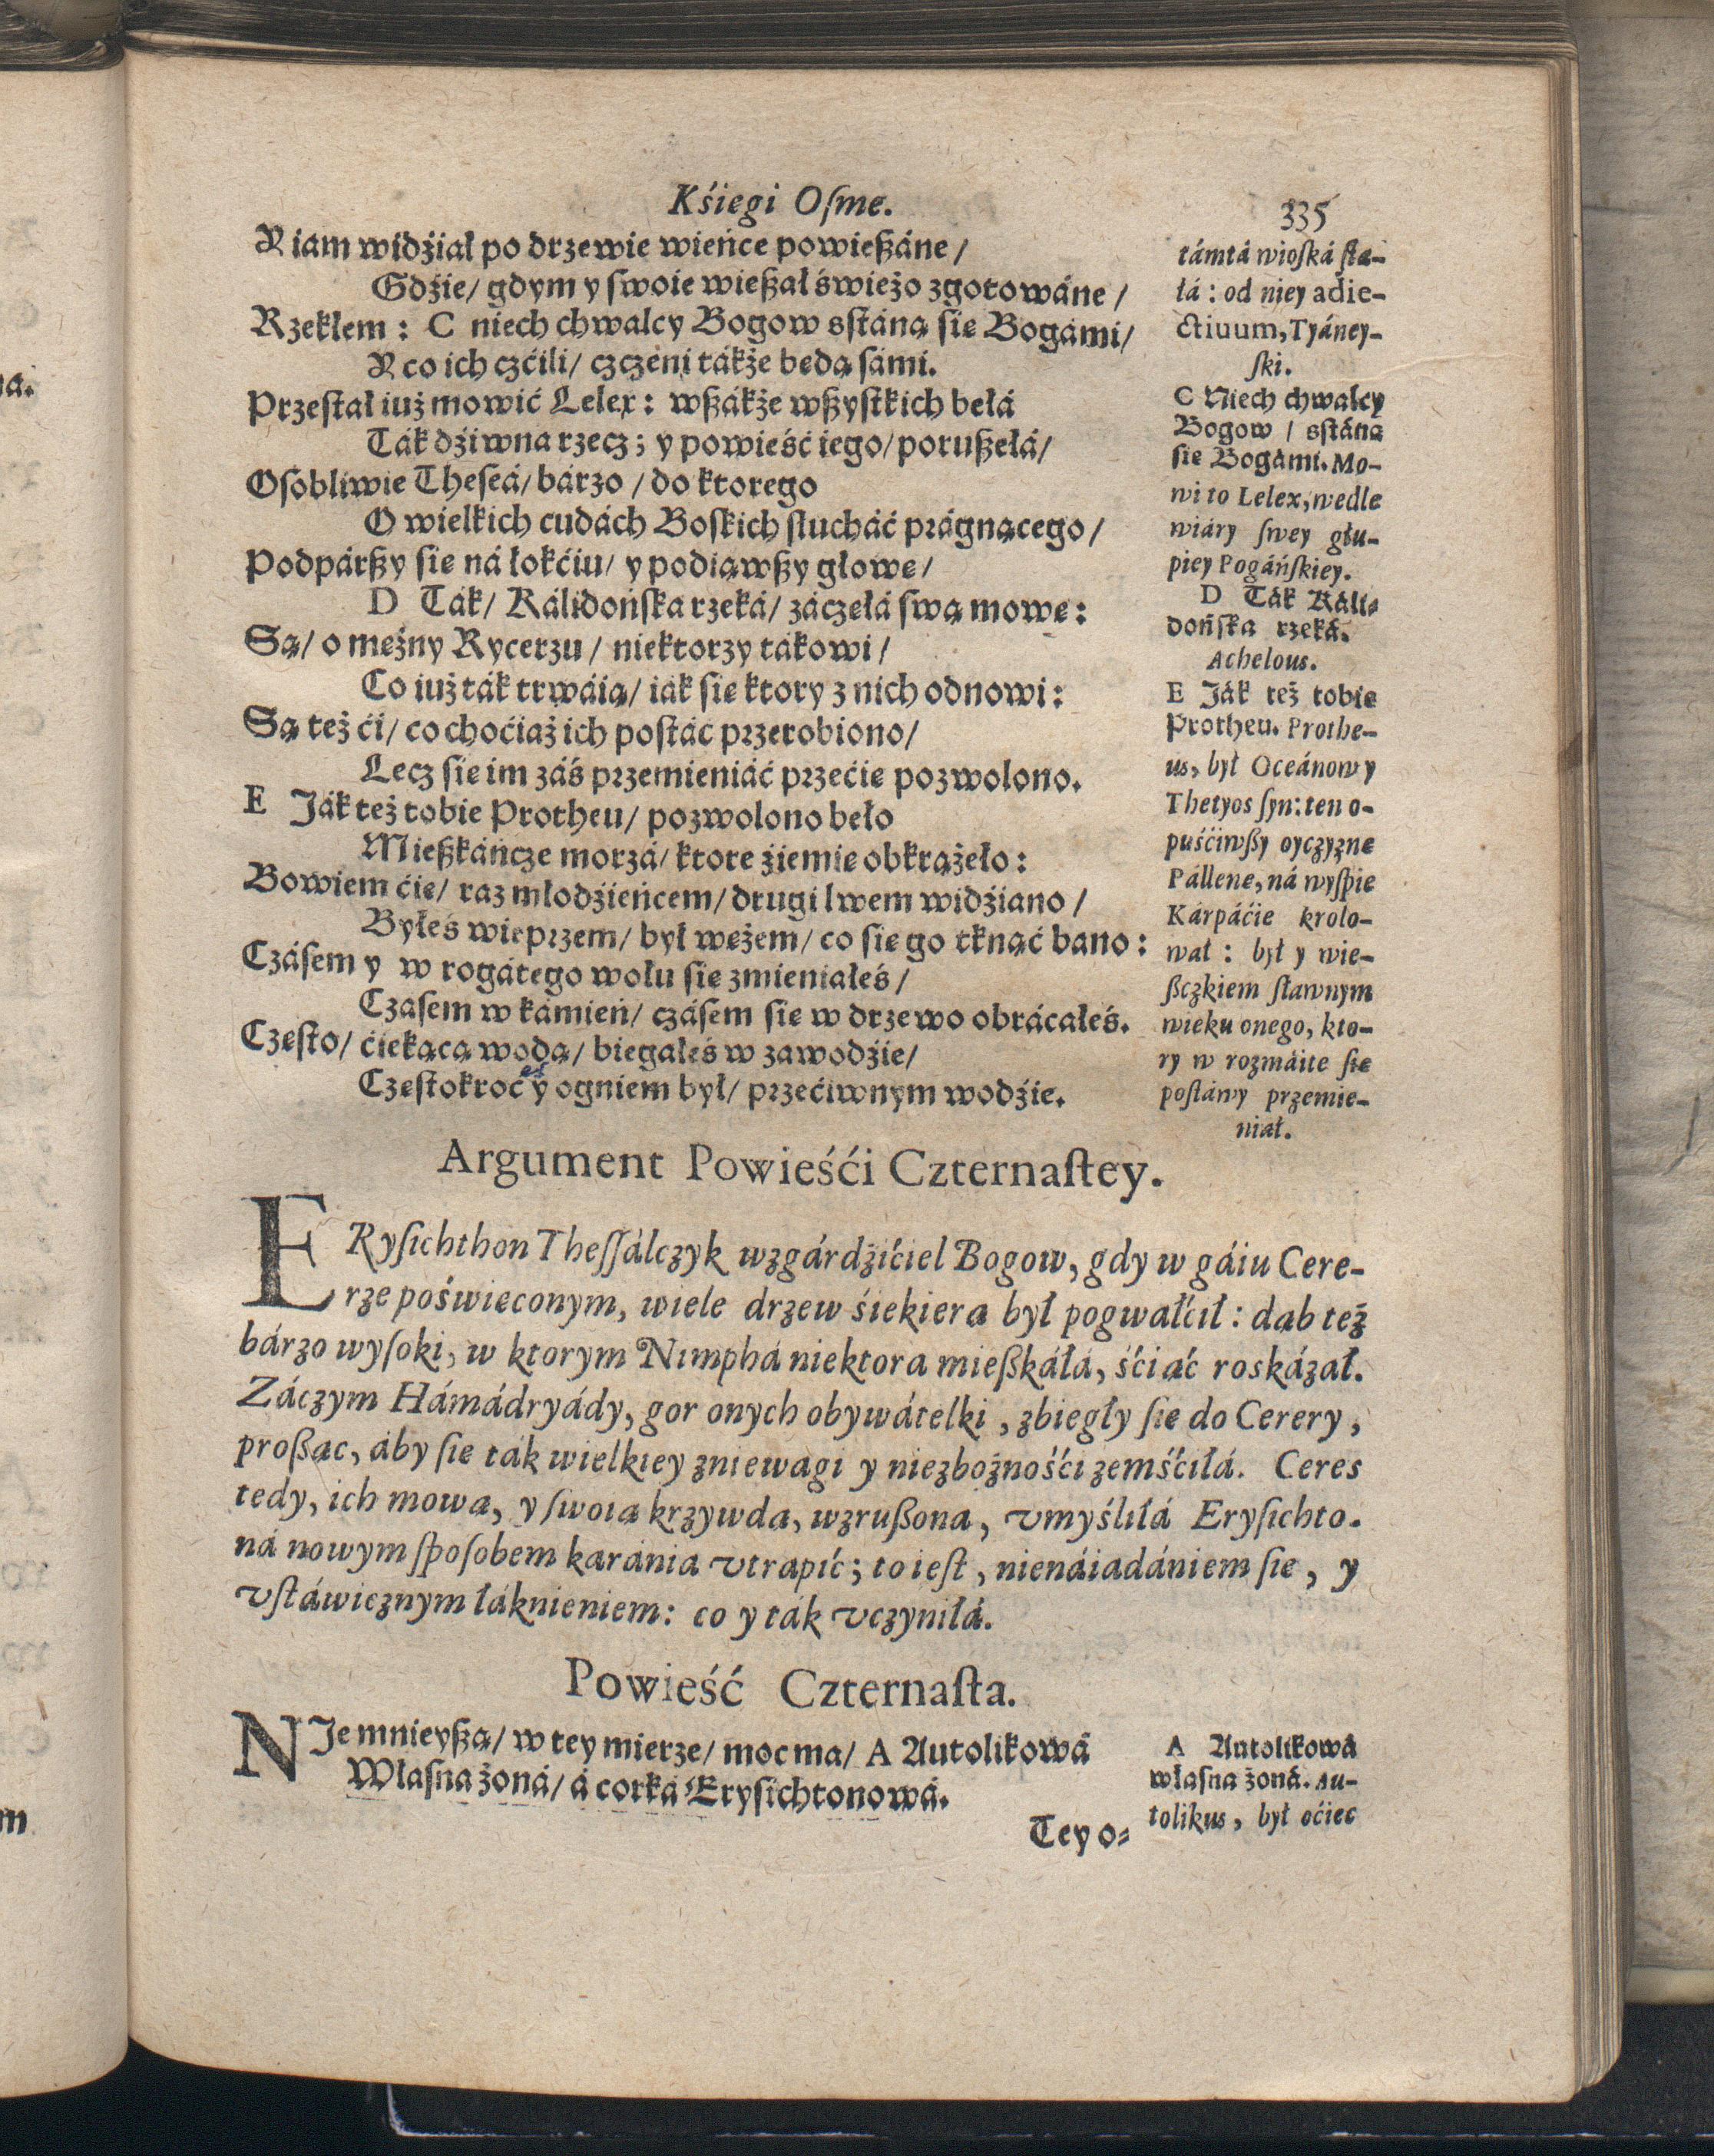 Kśięgi Oſme.
335
R iam widźiał po drzewie wieńce powießáne /
Gdźie / gdym y ſwoie wießał świeżo zgotowáne /
Rzekłem : C niech chwalcy Bogow sſtáną ſie Bogámi /
R co ich czćili / czczeni tákże będą sámi.
Przeſtał iuż mowić Lelex : wßákże wßyſtkich bełá
Ták dźiwna rzecz ; y powieść iego / porußełá /
Oſobliwie Theſeá / bárzo / do ktorego
O wielkich cudách Boſkich ſłucháć prágnącego /
Podpárßy ſie ná łokćiu / y podiąwßy głowę /
D Ták / Kálidońſka rzeká / záczęłá ſwą mowę :
Są / o mężny Rycerzu / niektorzy tákowi /
Co iuż ták trwáią / iák ſie ktory z nich odnowi :
Są też ći / co choćiaż ich poſtáć przerobiono /
Lecz ſie im záś przemieniáć przećie pozwolono.
E Ják też tobie Protheu / pozwolono beło
Mießkáńcze morzá / ktore źiemię obkrążeło :
Bowiem ćię / raz młodźieńcem / drugi lwem widźiano /
Byłeś wieprzem / był wężem / co ſie go tknąć bano :
Czáſem y w rogátego wołu ſie zmieniałeś /
Czaſem w kámień / czáſem ſie w drzewo obrácałeś.
Częſto / ćiekącą wodą / biegałeś w zawodźie /
Częſtokroć y ogniem był / przećiwnym wodźie.
eś
támtá wioſká ſta-
łá : od niey adie-
ctiuum, Tyáney-
ſki.
C Niech chwalcy
Bogow / sſtáną
ſie Bogámi. Mo-
wi to Lelex, wedle
wiáry ſwey głu-
piey Pogáńſkiey.
D Ták Káli-
dońſka rzeká.
Achelous.
E Ják też tobie
Protheu. Prothe-
us, był Oceánow y
Thetyos ſyn: ten o-
puśćiwßy oyczyznę
Pállene, ná wyſpie
Kárpáćie krolo-
wał : był y wie-
ßczkiem ſławnym
wieku onego, kto-
ry w rozmáite ſie
poſtáwy przemie-
niał.
Argument Powieśći Czternaſtey.
ERyſichthon Theſſálczyk wzgárdźićiel Bogow, gdy w gáiu Cere-
rze poświęconym, wiele drzew śiekierą był pogwałćił : dąb też
bárzo wyſoki, w ktorym Nimphá niektora mießkáłá, śćiąć roskázał.
Záczym Hámádryády, gor onych obywátelki, zbiegły ſie do Cerery,
proßąc, áby ſie ták wielkiey zniewagi y niezbożnośći zemśćiłá. Ceres
tedy, ich mową, y ſwoią krzywdą, wzrußona, vmyśliłá Eryſichto-
ná nowym ſpoſobem karánia vtrapić; to ieſt, nienáiadániem ſie, y
vſtáwicznym łáknieniem: co y ták vczyniłá.
Powieść Czternaſta.
NJe mnieyßą / w tey mierze / moc ma / A Autolikowá
Właſna żoná / á corká Eryſichtonowá.
A Autolikowá
właſna żoná. Au-
tolikus, był oćiec
Tey o-